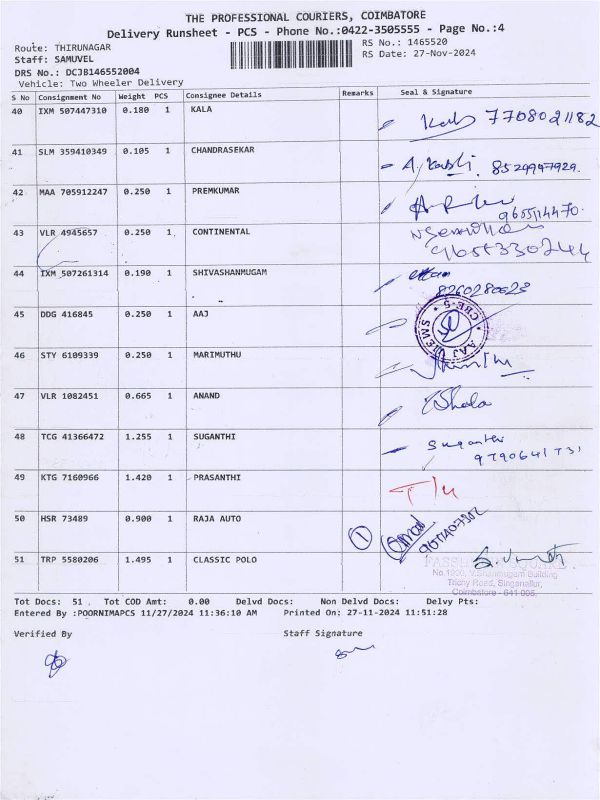 THE PROFESSIONAL COURIERS, COIMBATORE
Delivery Runsheet - PCS - Phone No.:0422-3505555 - Page No.:4
Route: THIRUNAGAR RS No.: 1465520
Staff: SAMUVEL RS Date: 27-Nov-2024
DRS No.: DCJB146552004
Vehicle: Two Wheeler Delivery
S No Consignment No Weight PCS Consignee Details Remarks Seal & Signature
40 IXM 507447310 0.180 1 KALA 7708021182
41 SLM 359410349 0.105 1 CHANDRASEKAR 8529947929.
42 MAA 705912247 0.250 1 PREMKUMAR
43 VLR 4945657 0.250 1 CONTINENTAL
44 IXM 507261314 0.190 1 SHIVASHANMUGAM
8260280623
45 DDG 416845 0.250 1 AAJ
46 STY 6109339 0.250 1 MARIMUTHU
47 VLR 1082451 0.665 1 ANAND
48 TCG 41366472 1.255 1 SUGANTHI
49 KTG 7160966 1.420 1 PRASANTHI
50 HSR 73489 0.900 1 RAJA AUTO 1
51 TRP 5580206 1.495 1 CLASSIC POLO
Trichy Road, Singanallur,
Coimbatore - 641 005.
Tot Docs: 51 Tot COD Amt: 0.00 Delvd Docs: Non Delvd Docs: Delvy Pts:
Entered By :POORNIMAPCS 11/27/2024 11:36:10 AM Printed On: 27-11-2024 11:51:28
Verified By Staff Signature